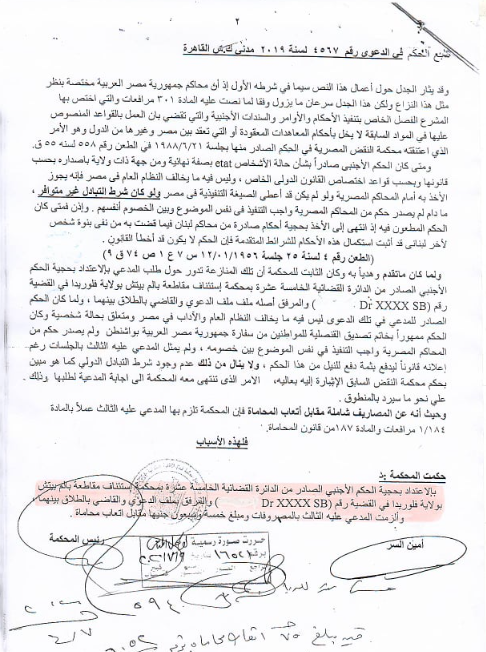 ٢
تابع الحكم في الدعوى رقم ٤٥٦٧ لسنة ٢٠١٩ مدني ك.ش القاهرة
وقد يثار الجدل حول أعمال هذا النص سيما في شرطه الأول إذ أن محاكم جمهورية مصر العربية مختصة بنظر
مثل هذا النزاع ولكن هذا الجدل سرعان ما يزول وفقا لما نصت عليه المادة ٣٠١ مرافعات والتي اختص بها
المشرع الفصل الخاص بتنفيذ الأحكام والأوامر والسندات الأجنبية والتي تقضي بان العمل بالقواعد المنصوص
عليها في المواد السابقة لا يخل بأحكام المعاهدات المعقودة أو التي تعقد بين مصر وغيرها من الدول وهو الأمر
الذي اعتنقته محكمة النقض المصرية في الحكم الصادر منها بجلسة ١٩٨٨/٦/٢١ في الطعن رقم ٥٥٨ لسنة ٥٥ ق.
ومتى كان الحكم الأجنبي صادراً بشأن حالة الأشخاص etat بصفة نهائية ومن جهة ذات ولاية باصداره بحسب
قانونها وبحسب قواعد اختصاص القانون الدولي الخاص ، وليس فيه ما يخالف النظام العام في مصر فإنه يجوز
الأخذ به أمام المحاكم المصرية ولو لم يكن قد أعطى الصيغة التنفيذية في مصر ولو كان شرط التبادل غير متوافر ،
ما دام لم يصدر حكم من المحاكم المصرية واجب التنفيذ في نفس الموضوع وبين الخصوم أنفسهم . وإذن فمتى كان
الحكم المطعون فيه إذ انتهى إلى الأخذ بحجية أحكام صادرة من محاكم لبنان فيما قضت به من نفى بنوة شخص
لآخر لبنانى قد أثبت استكمال هذه الأحكام للشرائط المتقدمة فإن الحكم لا يكون قد أخطأ القانون .
(الطعن رقم ٤ لسنة ٢٥ جلسة ١٢/٠١/١٩٥٦ س ٧ ع ١ ص ٧٤ ق ٩)
ولما كان ماتقدم وهدياً به وكان الثابت للمحكمة أن تلك المنازعة تدور حول طلب المدعي بالاعتداد بحجية الحكم
الأجنبي الصادر من الدائرة القضائية الخامسة عشرة بمحكمة إستئناف مقاطعة بالم بيتش بولاية فلوريدا في القضية
رقم (Dr XXXX SB ) والمرفق أصله ملف الدعوي والقاضي بالطلاق بينهما ، ولما كان الحكم
الصادر للمدعي في تلك الدعوى ليس فيه ما يخالف النظام العام والآداب في مصر ومتعلق بحالة شخصية وكان
الحكم ممهوراً بخاتم تصديق القنصلية للمواطنين من سفارة جمهورية مصر العربية بواشنطن ولم يصدر حكم من
المحاكم المصرية واجب التنفيذ في نفس الموضوع بين خصومه ، ولم يمثل المدعي عليه الثالث بالجلسات رغم
إعلانه قانوناً ليدفع بثمة دفع للنيل من هذا الحكم ، ولا ينال من ذلك عدم وجود شرط التبادل الدولي كما هو مبين
بحكم محكمة النقض السابق الإشارة إليه بعاليه، الامر الذى تنتهى معه المحكمة الى اجابة المدعية لطلبها وذلك
علي نحو ما سيرد بالمنطوق .
وحيث أنه عن المصاريف شاملة مقابل أتعاب المحاماة فإن المحكمة تلزم بها المدعي عليه الثالث عملاً بالمادة
١/١٨٤ مرافعات والمادة ١٨٧ من قانون المحاماة.
فلهذه الأسباب
حكمت المحكمة :
بالاعتداد بحجية الحكم الأجنبي الصادر من الدائرة القضائية الخامسة عشرة بمحكمة إستئناف مقاطعة بالم بيتش
بولاية فلوريدا في القضية رقم (Dr XXXX SB ) والمرفق بملف الدعوي والقاضي بالطلاق بينهما ،
وألزمت المدعي عليه الثالث بالمصروفات ومبلغ خمسة وسبعون جنيها مقابل اتعاب محاماة .
أمين السر
رئيس المحكمة
حررت صورة رسمية
٥٩٤